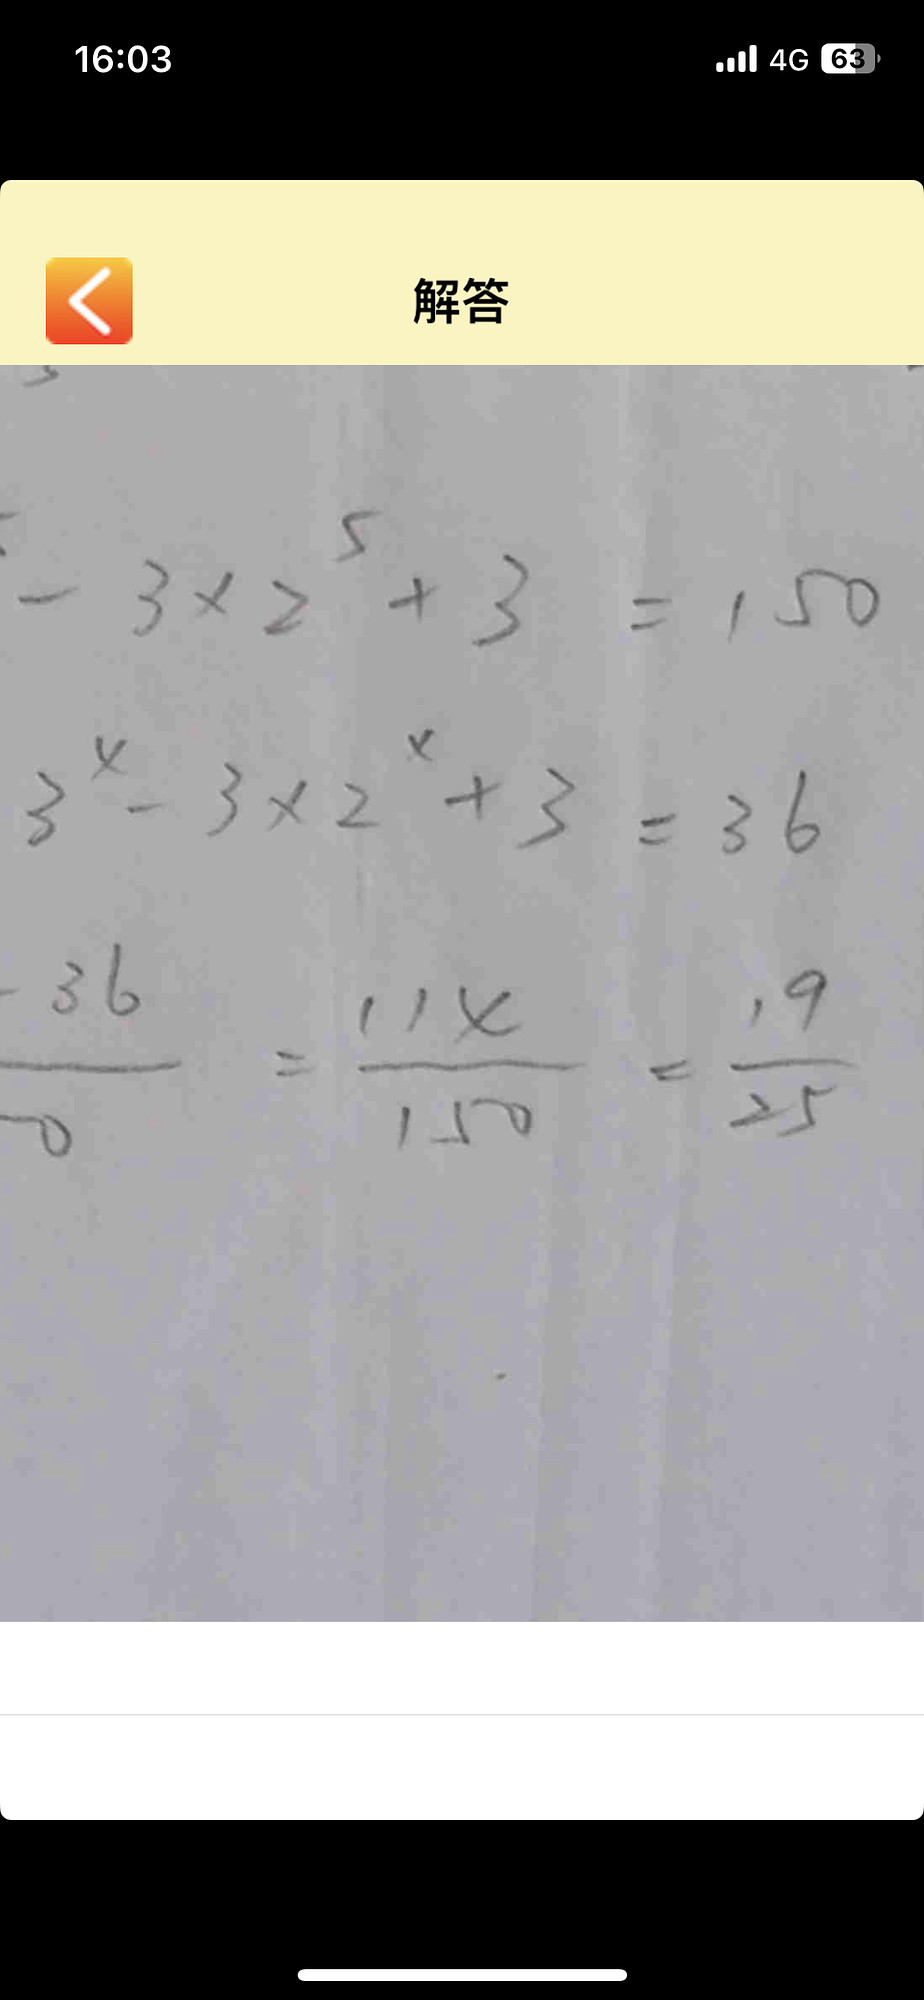 16:03
4G 63
解答
- 3 × 2⁵ + 3 = 150
3⁴ - 3 × 2⁴ + 3 = 36
- 36 = 114 = 19
50 150 25